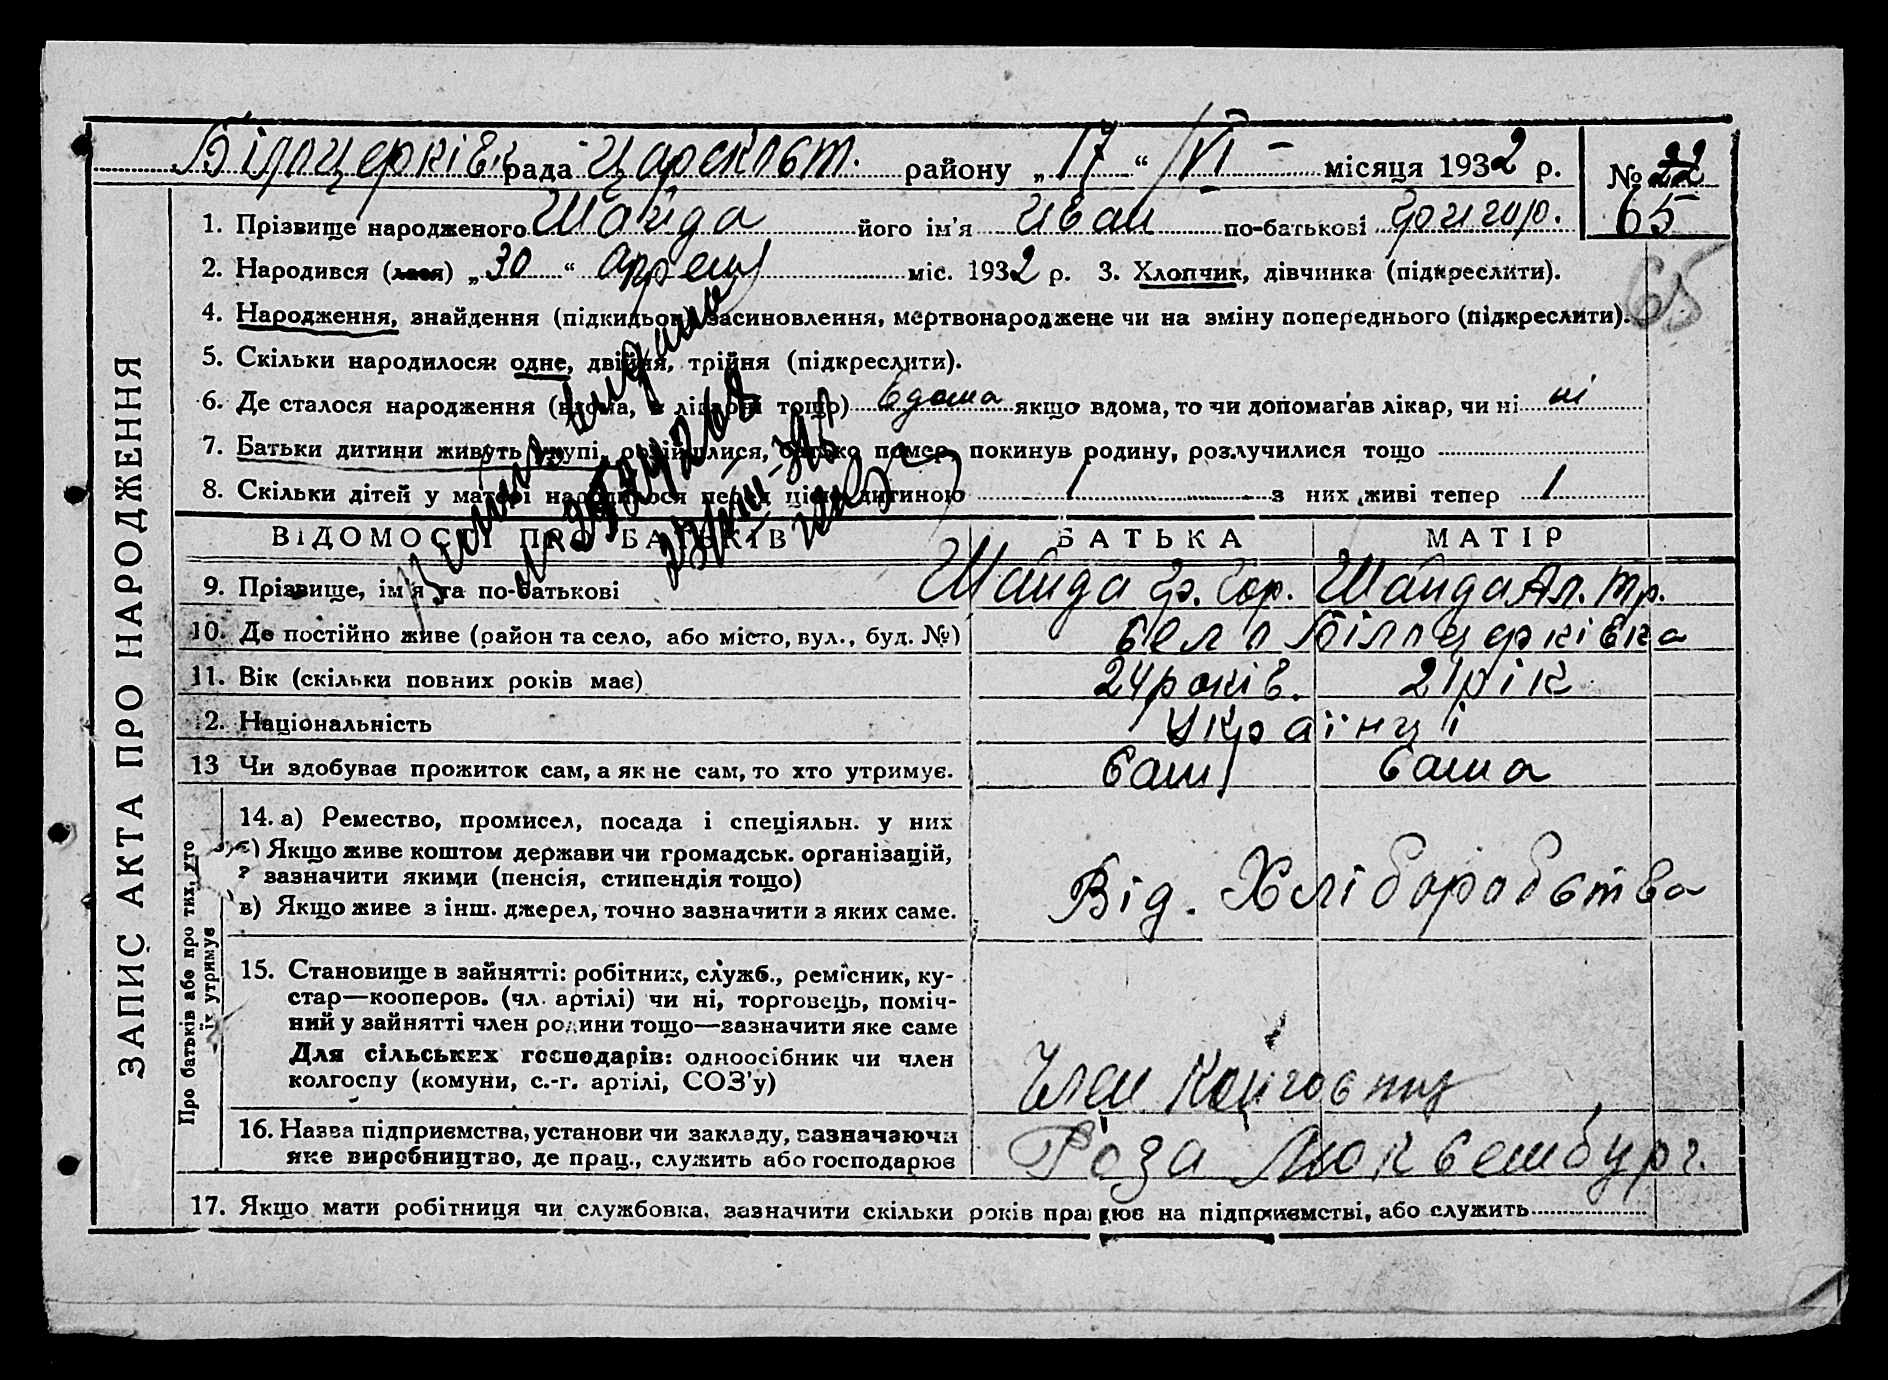 Білоцерків рада Царекност. району „17“ VI – місяця 1932 р. № 22
65
1. Прізвище народженого Шайда його ім'я Іван по-батькові Григор.
2. Народився (лася) „30“ міс. 1932 р. 3. Хлопчик, дівчинка (підкреслити).
65
4. Народження, знайдення (підкидьок), засиновлення, мертвонароджене чи на зміну попереднього (підкреслити).
5. Скільки народилося: одне, двійня, трійня (підкреслити).
6. Де сталося народження (вдома, в лікарні тощо) вдома якщо вдома, то чи допомагав лікар, чи ні ні
7. Батьки дитини живуть укупі, розійшлися, батько помер, покинув родину, розлучилися тощо
8. Скільки дітей у матері народилося перед цією дитиною 1 з них живі тепер 1
ВІДОМОСТІ ПРО БАТЬКІВ БАТЬКА МАТІР
9. Прізвище, ім'я та по-батькові Шайда Гр. Гор. Шайда Ал. Тр.
10. Де постійно живе (район та село, або місто, вул., буд. №) село Білоцерківка
11. Вік (скільки повних років має) 24 років. 21 рік
12. Національність Українці
13 Чи здобуває прожиток сам, а як не сам, то хто утримує. сам сама
Про батьків або про тих, хто їх утримує
14. а) Ремество, промисел, посада і спеціяльн. у них
б) Якщо живе коштом держави чи громадськ. організацій,
зазначити якими (пенсія, стипендія тощо)
в) Якщо живе з інш. джерел, точно зазначити з яких саме.
Від. Хліборобства
15. Становище в зайнятті: робітник, служб., ремісник, ку-
стар—кооперов. (чл. артілі) чи ні, торговець, поміч-
ний у зайнятті член родини тощо—зазначити яке саме
Для сільських господарів: одноосібник чи член
колгоспу (комуни, с.-г. артілі, СОЗ'у)
Член Колгоспу
16. Назва підприємства, установи чи закладу, зазначаючи
яке виробництво, де прац., служить або господарює
Роза Люксембург.
17. Якщо мати робітниця чи службовка, зазначити скільки років працює на підприємстві, або служить
ЗАПИС АКТА ПРО НАРОДЖЕННЯ